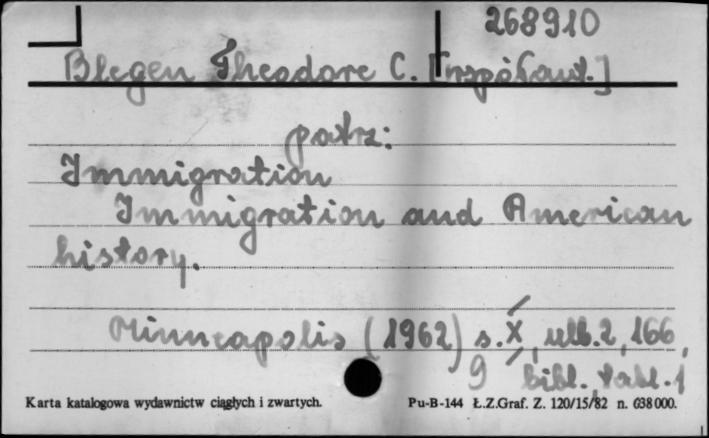 268910
Blegen Theodore C. [współaut.]
patrz:
Immigration
Immigration and American
history.
Minneapolis (1962) s. X, nlb. 2, 166,
9 bibl. tabl. 1
Karta katalogowa wydawnictw ciągłych i zwartych.
Pu-B-144 Ł.Z.Graf. Z. 120/15/82 n. 638000.